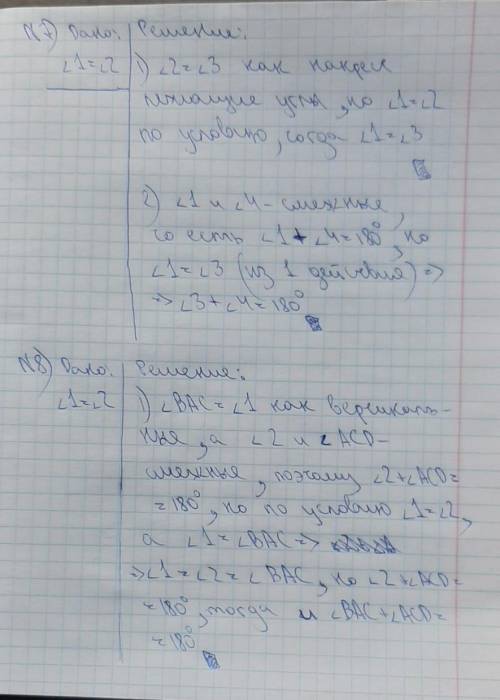 N7) Дано: Решение:
∠1=∠2 1) ∠2=∠3 как накрест
лежащие углы, но ∠1=∠2
по условию, тогда ∠1=∠3
2) ∠1 и ∠4 - смежные,
то есть ∠1+∠4=180°, но
∠1=∠3 (из 1 действия) =>
=> ∠3+∠4=180°
N8) Дано: Решение:
∠1=∠2 1) ∠BAC=∠1 как вертикаль-
ные, а ∠2 и ∠ACD-
смежные, поэтому ∠2+∠ACD=
=180°, но по условию ∠1=∠2,
а ∠1=∠BAC =>
=> ∠1=∠2=∠BAC, но ∠2+∠ACD=
=180°, тогда и ∠BAC+∠ACD=
=180°